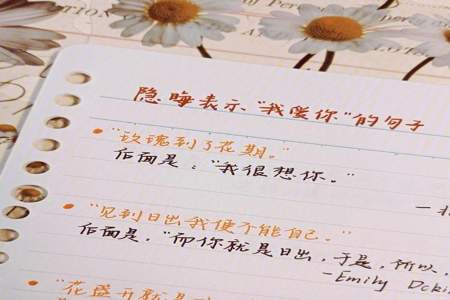 隐晦表示"我爱你"的句子
"玫瑰到了花期。"
后面是："我很想你。"
"见到日出我便不能自己。"
后面是，"而你就是日出，于是，所以，
-Emily
"花盛开就是